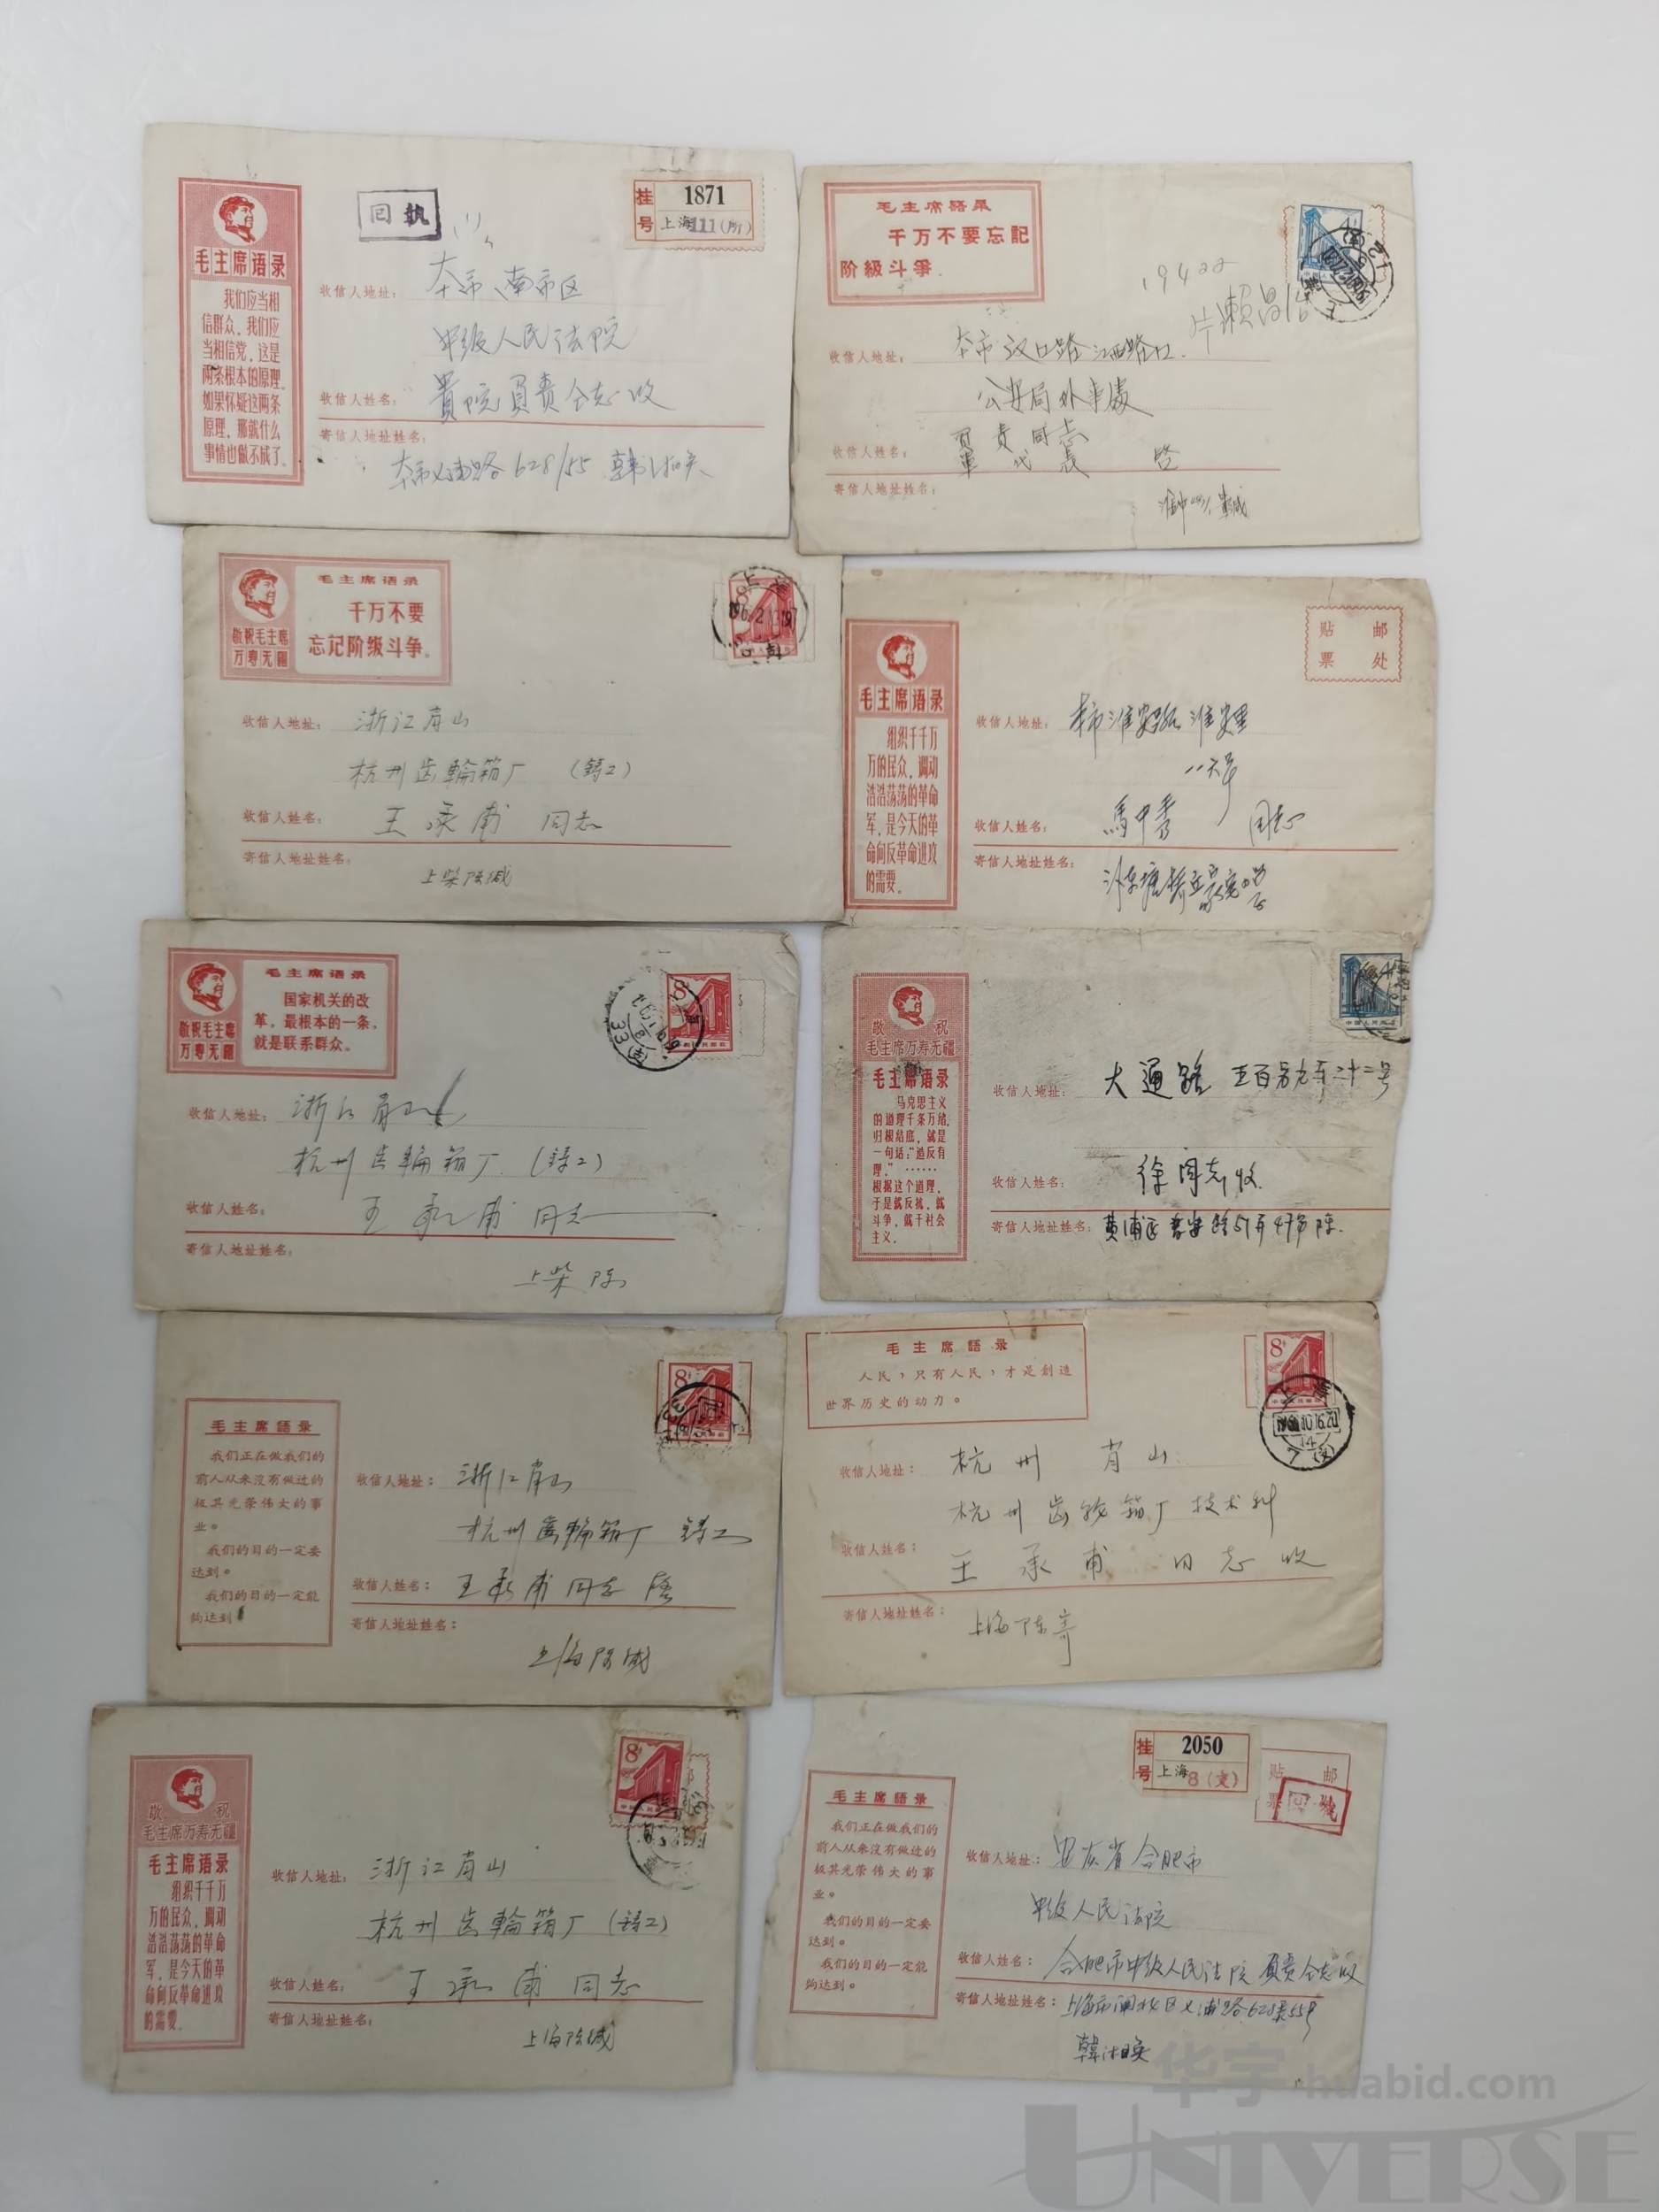 毛主席语录
我们应当相
信群众,我们应
当相信党,这是
两条根本的原理。
如果怀疑这两条
原理,那就什么
事情也做不成了。
回执
挂号
1871
上海111(所)
收信人地址:
本市南市区
中级人民法院
收信人姓名:
贵院負责仝志收
寄信人地址姓名:
628/55
毛主席語录
千万不要忘記
阶級斗爭。
19422
收信人地址:
本市汉口路江西路口
公安局外事處
收信人姓名:
寄信人地址姓名:
敬祝毛主席
万寿无疆
毛主席语录
千万不要
忘记阶级斗争。
上海
收信人地址:
浙江肖山
杭州齿輪箱厂 (鋳工)
收信人姓名:
王承甫 同志
寄信人地址姓名:
上柴陈诚
毛主席语录
组织千千万
万的民众,调动
浩浩荡荡的革命
军,是今天的革
命向反革命进攻
的需要。
贴邮
票处
收信人地址:
本市淮安路淮安里
收信人姓名:
馬中秀 同志
寄信人地址姓名:
敬祝毛主席
万寿无疆
毛主席语录
国家机关的改
革,最根本的一条,
就是联系群众。
8
收信人地址:
浙江肖山
杭州齿輪箱厂 (鋳工)
收信人姓名:
王承甫 同志
寄信人地址姓名:
上柴 陈
敬祝
毛主席万寿无疆
毛主席语录
马克思主义
的道理千条万绪,
归根结底,就是
一句话:“造反有
理。”……
根据这个道理,
于是就反抗,就
斗争,就干社会
主义。
中国人民邮政
收信人地址:
大通路
收信人姓名:
徐同志收
寄信人地址姓名:
黄浦区
毛主席語录
我们正在做我们的
前人从来沒有做过的
极其光荣伟大的事
业。
我们的目的一定要
达到。
我们的目的一定能
夠达到
8
收信人地址:
浙江肖山
杭州齒輪箱厂 鋳工
收信人姓名:
王承甫同志 启
寄信人地址姓名:
上海陈诚
毛主席語录
人民,只有人民,才是創造
世界历史的动力。
8
上海
收信人地址:
杭州 肖山
杭州齿轮箱厂技术科
收信人姓名:
王承甫 同志收
寄信人地址姓名:
上海陈寄
敬祝
毛主席万寿无疆
毛主席语录
组织千千万
万的民众,调动
浩浩荡荡的革命
军,是今天的革
命向反革命进攻
的需要。
8
中国人民邮政
收信人地址:
浙江肖山
杭州齿輪箱厂(鋳工)
收信人姓名:
王承甫 同志
寄信人地址姓名:
上海陈诚
毛主席語录
我们正在做我们的
前人从来沒有做过的
极其光荣伟大的事
业。
我们的目的一定要
达到。
我们的目的一定能
夠达到。
挂号
2050
上海8(支)
贴邮
票
收信人地址:
安灰省合肥市
中级人民法院
收信人姓名:
合肥市中级人民法院 負责仝志收
寄信人地址姓名:
上海市闸北区乂浦路628弄55号
华宇 huabid.com
UNIVERSE